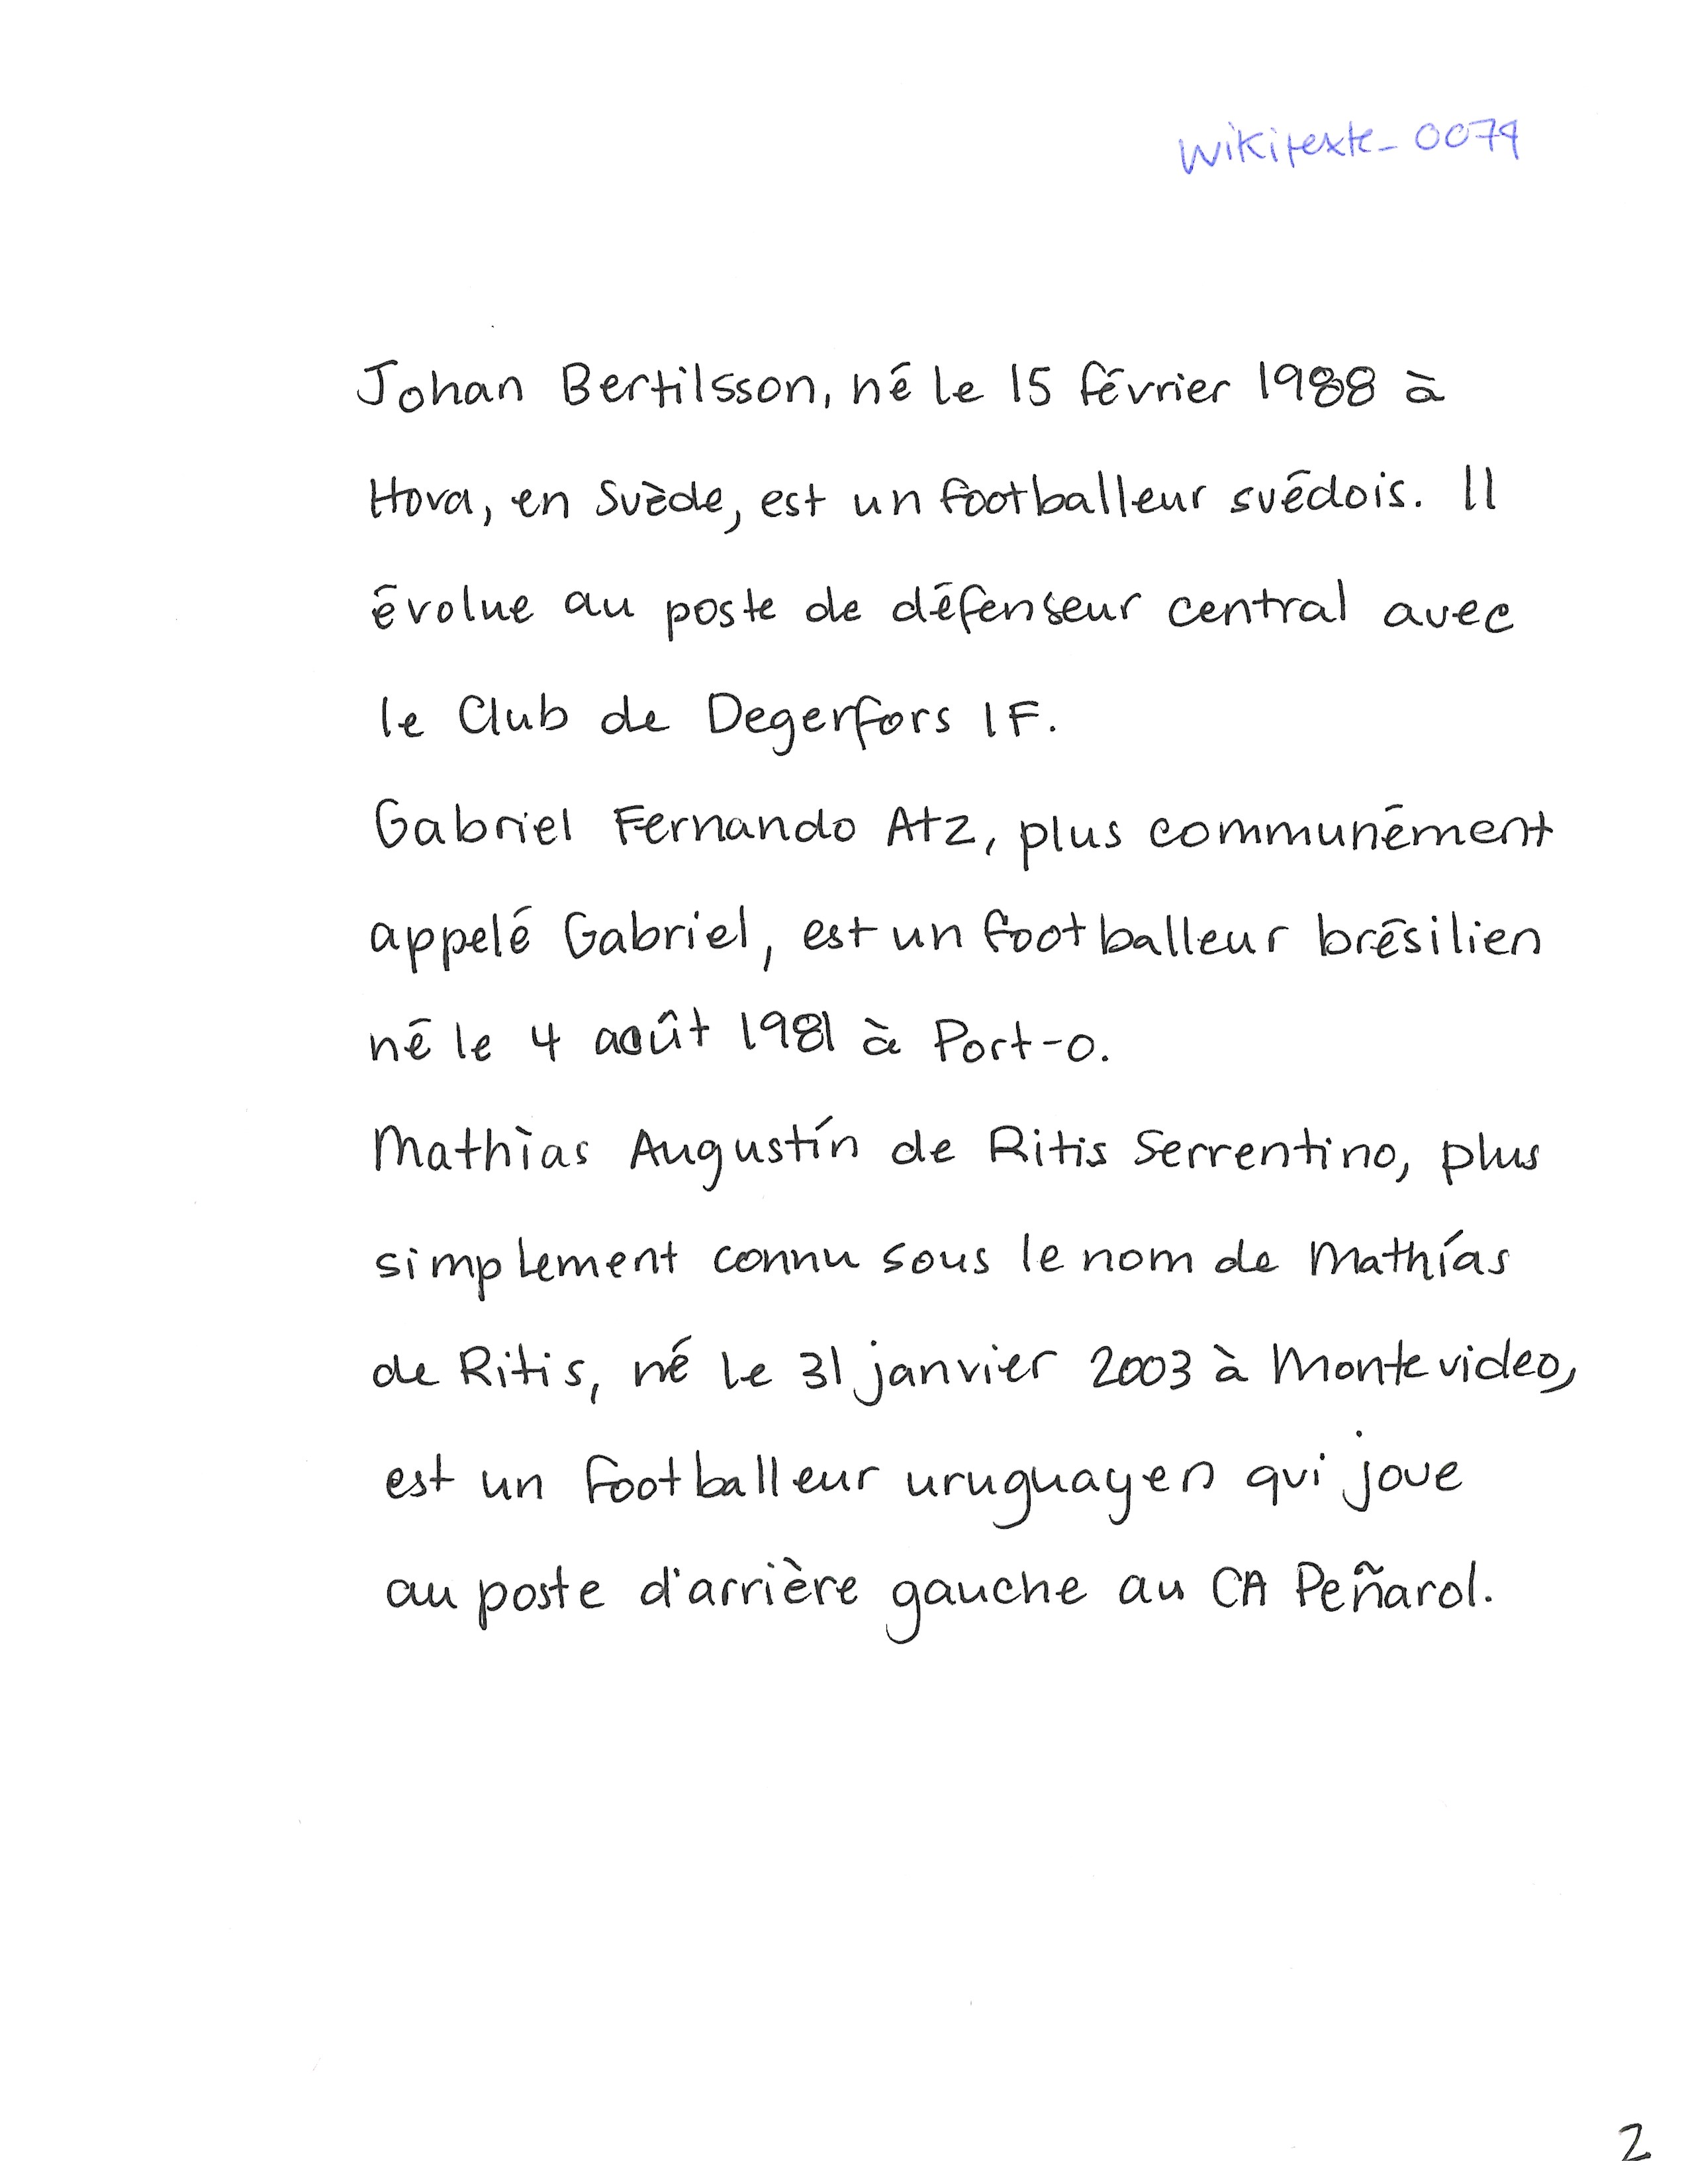 wikitexte_0079
Johan Bertilsson, né le 15 février 1988 à
Hova, en Suède, est un footballeur suédois. Il
évolue au poste de défenseur central avec
le Club de Degerfors IF.
Gabriel Fernando Atz, plus communément
appelé Gabriel, est un footballeur brésilien
né le 4 août 1981 à Port-o.
Mathìas Augustín de Ritis Serrentino, plus
simplement connu sous le nom de Mathías
de Ritis, né le 31 janvier 2003 à Montevideo,
est un footballeur uruguayen qui joue
au poste d'arrière gauche au CA Peñarol.
2